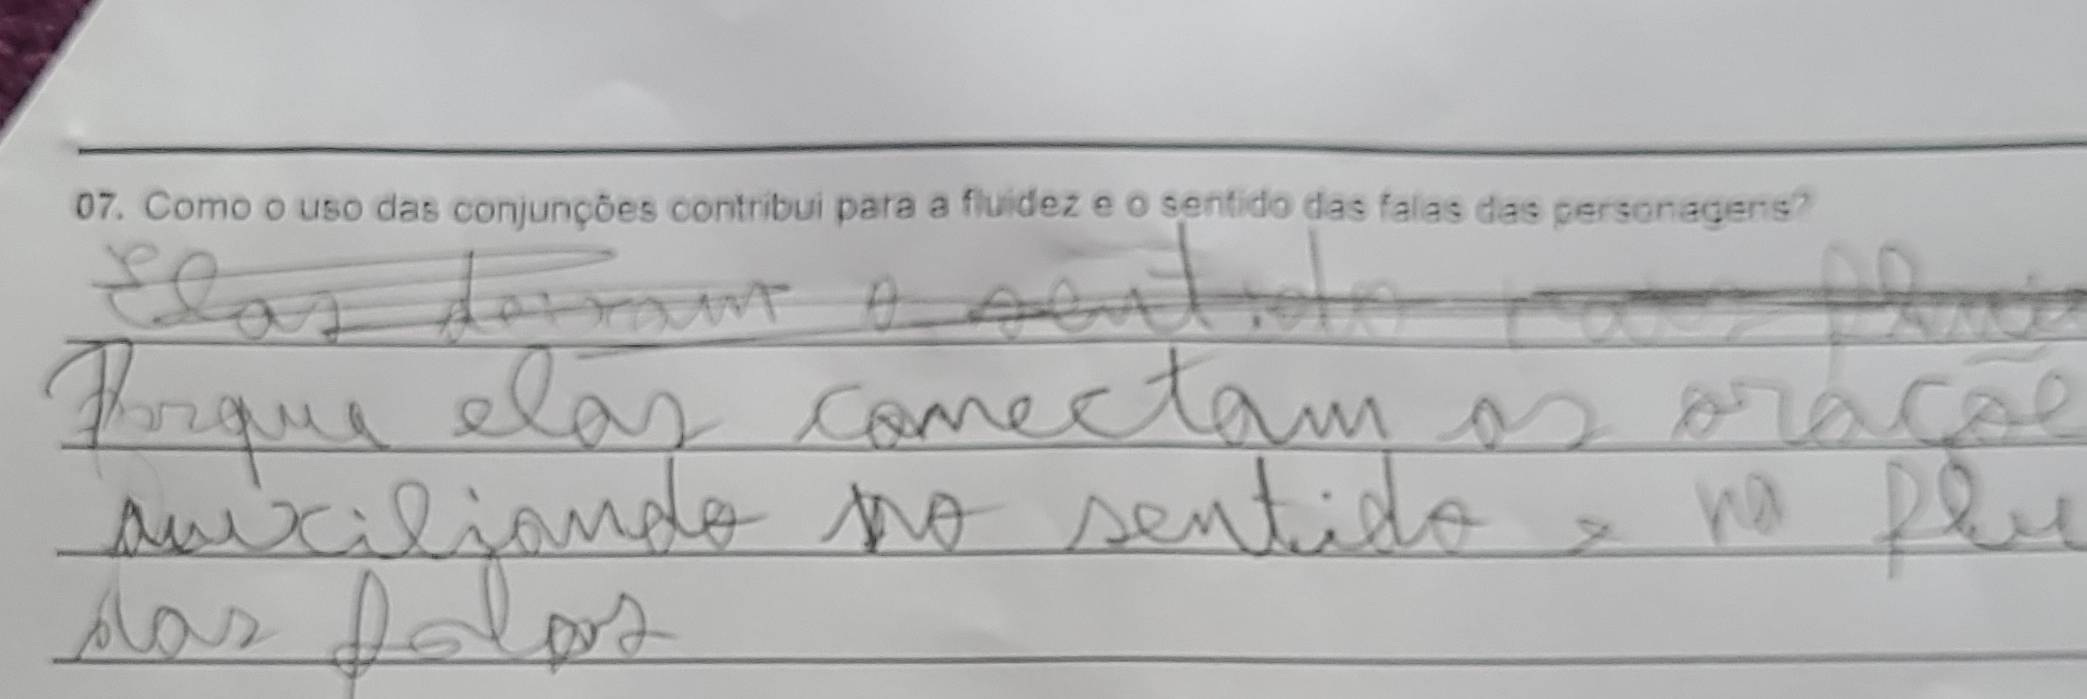 07. Como o uso das conjunções contribui para a fluidez e o sentido das falas das personagens?
Elas deixam o sentido mais
Porque elas conectam as oraçõe
auxiliando no sentido e na flu
das falas